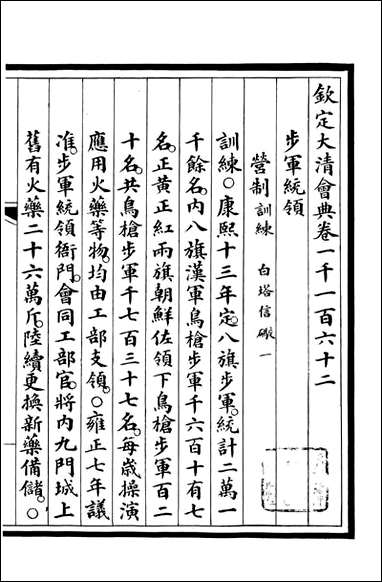 欽定大清會典卷一千一百六十二
步軍統領
營制 訓練 白塔信礮一
訓練○康熙十三年定八旗步軍統計二萬一
千餘名內八旗漢軍鳥槍步軍千六百十有七
名正黃正紅兩旗朝鮮佐領下鳥槍步軍百二
十名共鳥槍步軍千七百三十七名每歲操演
應用火藥等物均由工部支領○雍正七年議
准步軍統領衙門會同工部官將內九門城上
舊有火藥二十六萬斤陸續更換新藥備儲○